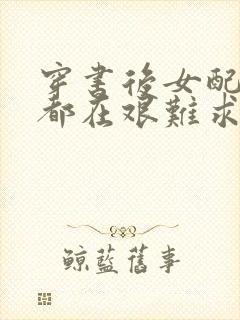 穿書後女配
都在艱難求
鯨藍舊事